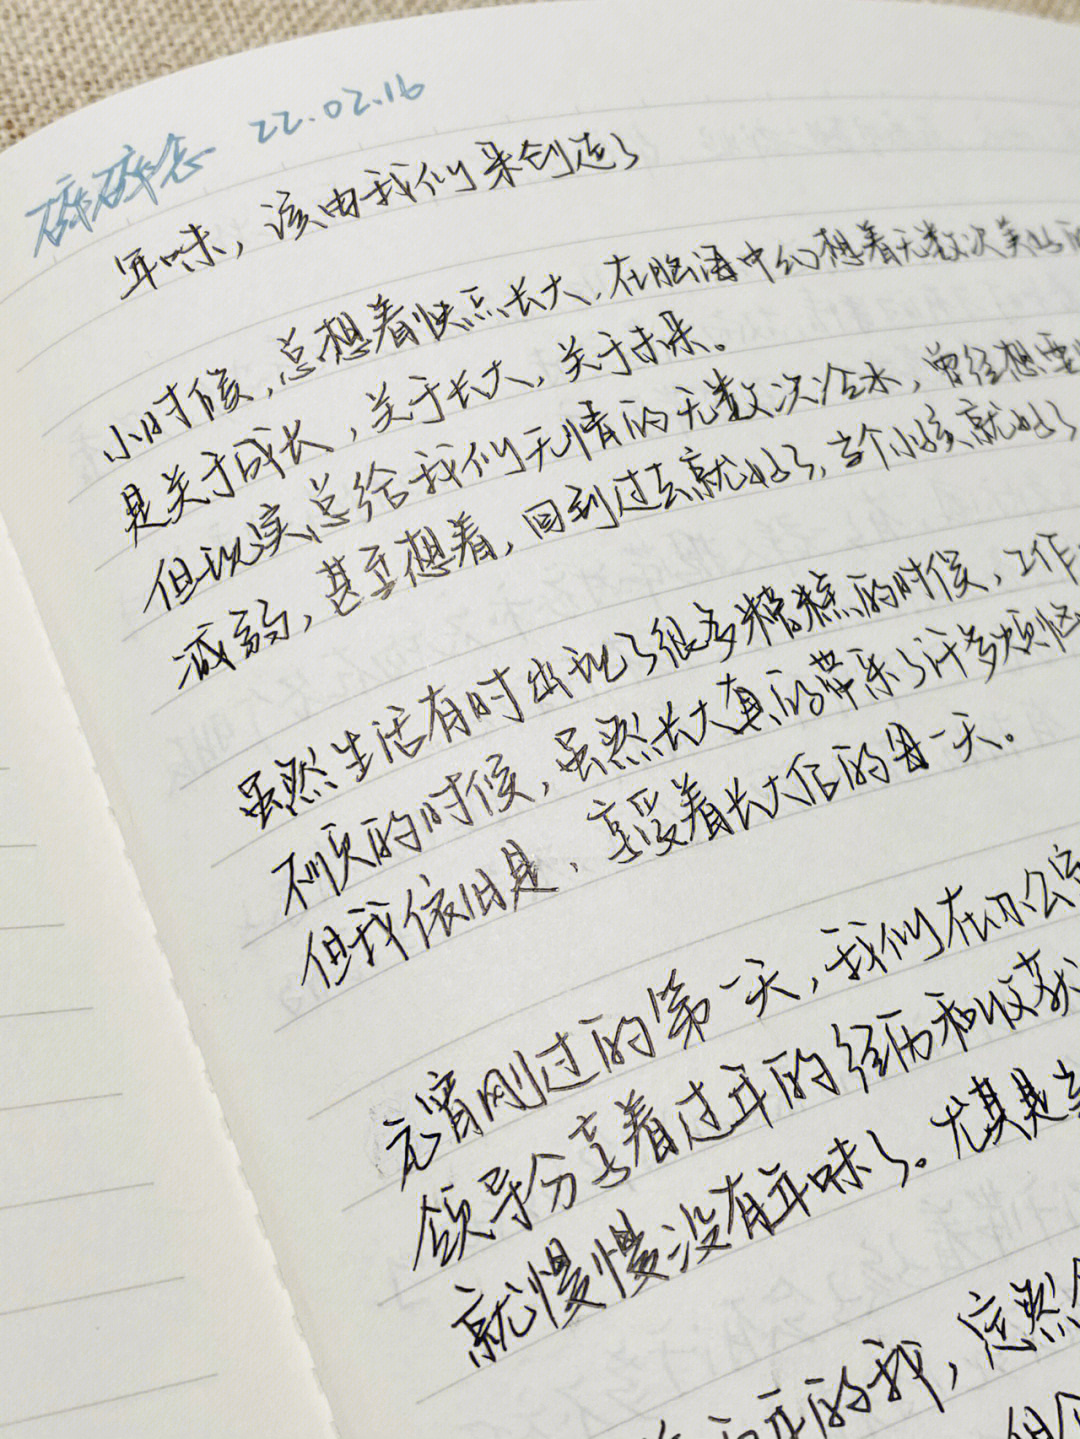 碎碎念 22.02.16
年味，该由我们来创造了
小时候，总想着快点长大，在脑海中幻想着无数次美好的
是关于成长，关于长大，关于未来。
但现实总给我们无情的无数次冷水，曾经想要
减弱，甚至想着，回到过去就好了，当个小孩就好了
虽然生活有时出现了很多糟糕的时候，工作
不顺的时候，虽然长大真的带来了许多烦恼
但我依旧是，享受着长大后的每一天。
元宵刚过的第一天，我们在办公室
领导分享着过年的经历和收获
就慢慢没有年味了。尤其是
年的我，忽然